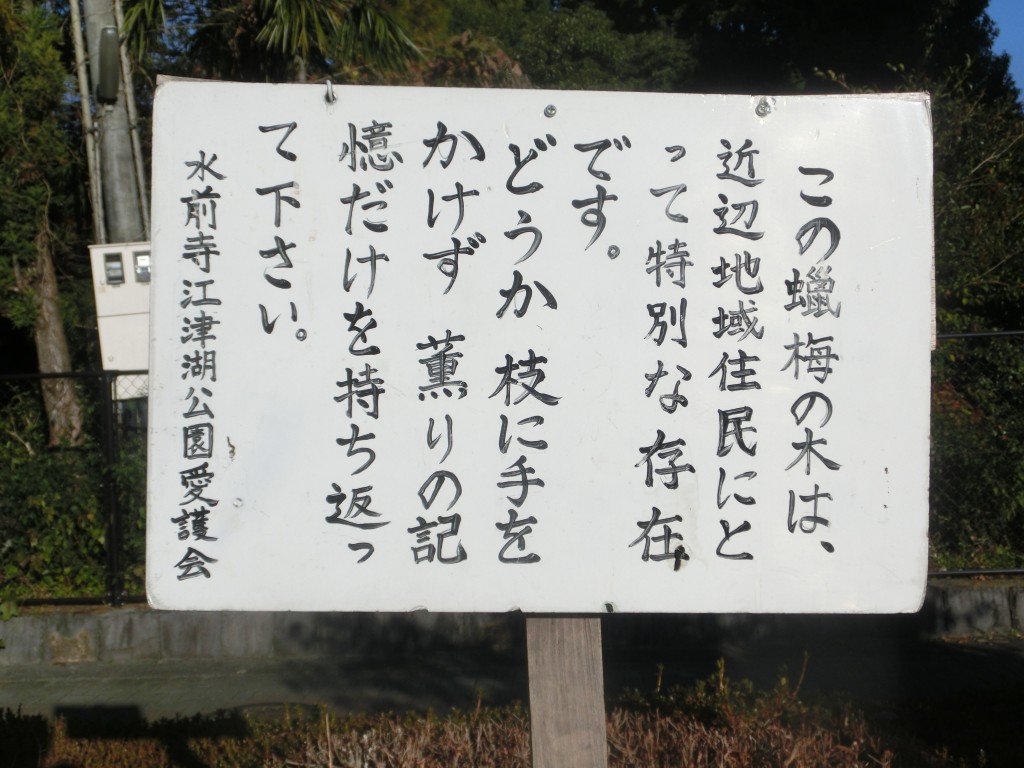 この蠟梅の木は、
近辺地域住民にと
って特別な存在
です。
どうか枝に手を
かけず 薫りの記
憶だけを持ち返っ
て下さい。
水前寺江津湖公園愛護会